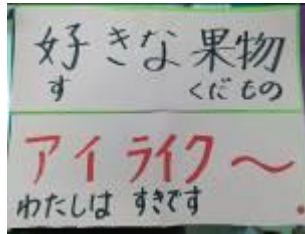 好きな果物
す くだもの
アイ ライク～
わたしは すきです